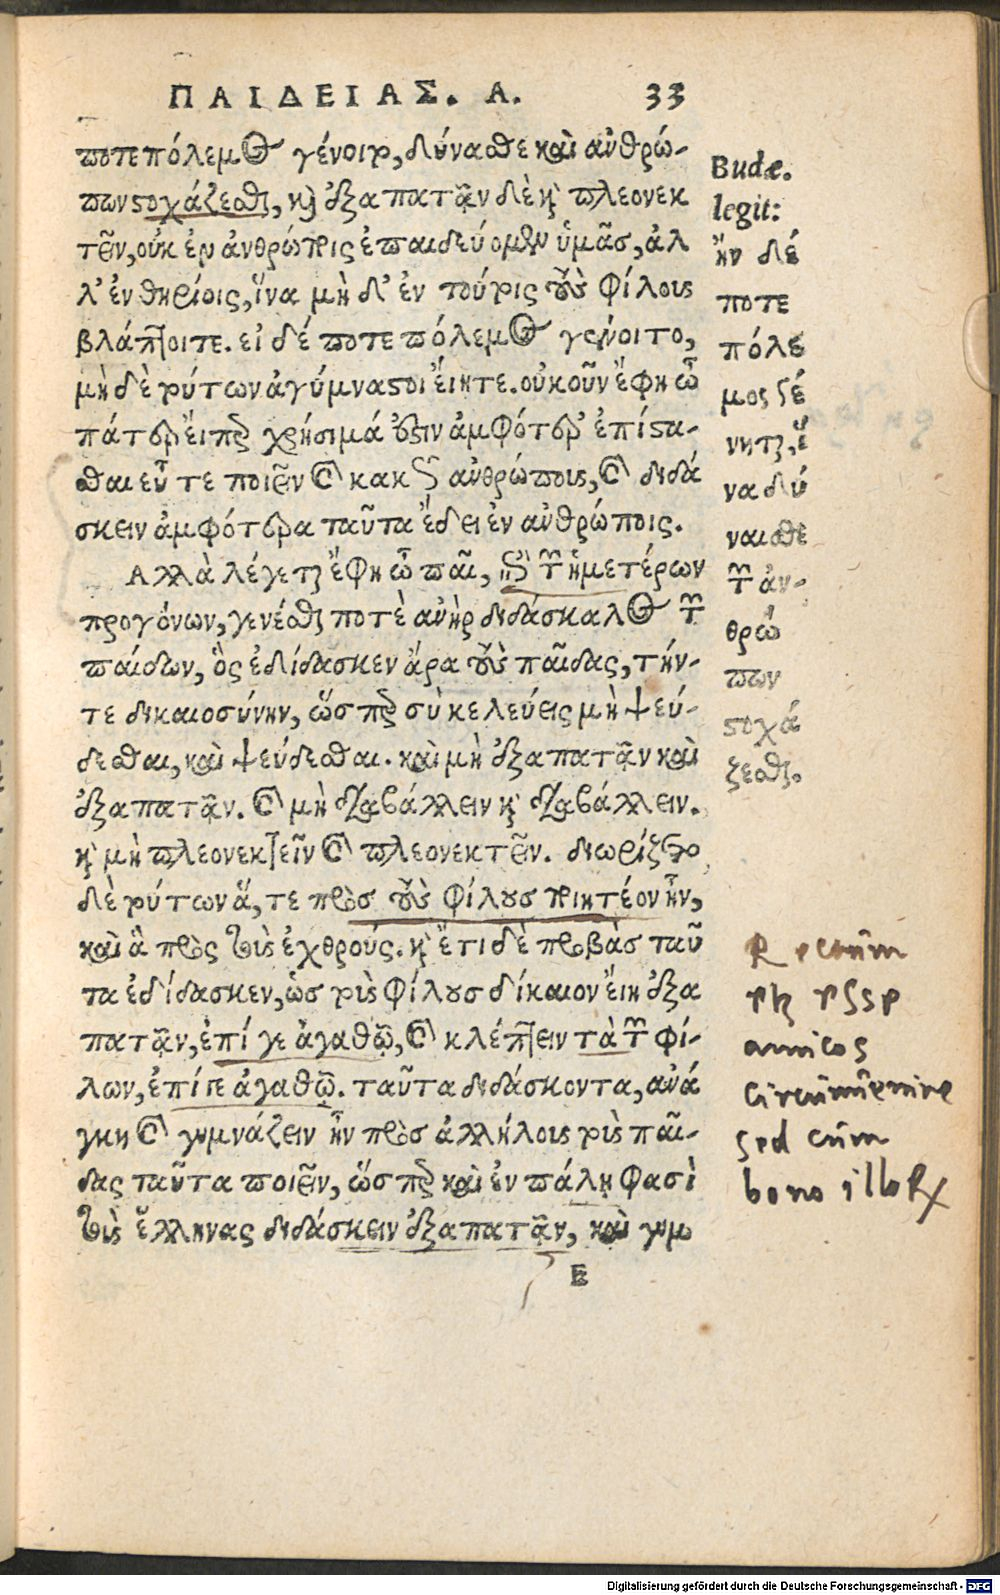 ΠΑΙΔΕΙΑΣ. Α. 33
ποτε πόλεμος γένοιτο, δύνασθε καὶ ἀνθρώ-
πων στοχάζεσθαι, καὶ ἐξαπατᾷν δὲ καὶ πλεονεκ
τεῖν, οὐκ ἐν ἀνθρώποις ἐπαιδεύομεν ὑμᾶς, ἀλ
λ' ἐν θηρίοις, ἵνα μὴ δ' ἐν τούτοις τοὺς φίλους
βλάπτοιτε. εἰ δέ ποτε πόλεμος γένοιτο,
μὴ δὲ τούτων ἀγύμναστοι εἴητε. οὐκοῦν ἔφη ὦ
πάτερ εἴπερ χρήσιμά ἐστιν ἀμφότερ' ἐπίστα-
σθαι εὖ τε ποιεῖν καὶ κακῶς ἀνθρώπους, καὶ διδά
σκειν ἀμφότερα ταῦτα ἔδει ἐν ἀνθρώποις.
Αλλὰ λέγεται ἔφη ὦ παῖ, ἐπὶ τῶν ἡμετέρων
προγόνων, γενέσθαι ποτὲ ἀνὴρ διδάσκαλος τῶν
παίδων, ὃς ἐδίδασκεν ἄρα τοὺς παῖδας, τήν-
τε δικαιοσύνην, ὥσπερ σὺ κελεύεις μὴ ψεύ-
δεσθαι, καὶ ψεύδεσθαι. καὶ μὴ ἐξαπατᾷν καὶ
ἐξαπατᾷν. καὶ μὴ διαβάλλειν καὶ διαβάλλειν.
καὶ μὴ πλεονεκτεῖν καὶ πλεονεκτεῖν. διώριζεν
δὲ τούτων ἅ, τε πρὸς τοὺς φίλους ποιητέον ἦν,
καὶ ἃ πρὸς τοὺς ἐχθρούς. καὶ ἔτι δὲ προβὰς ταῦ
τα ἐδίδασκεν, ὡς τοὺς φίλους δίκαιον εἴη ἐξα
πατᾷν, ἐπί γε ἀγαθῷ, καὶ κλέπτειν τὰ τῶν φί-
λων, ἐπί γε ἀγαθῷ. ταῦτα διδάσκοντα, ἀνά
γκη καὶ γυμνάζειν ἦν πρὸς ἀλλήλους τοὺς παῖ-
δας ταῦτα ποιεῖν, ὥσπερ καὶ ἐν πάλῃ φασὶ
τοὺς ἕλληνας διδάσκειν ἐξαπατᾷν, καὶ γυμ
E
Budæ.
legit:
ἤν δέ
ποτε
πόλε
μος γέ
νηται, ἵ
να δύ
ναισθε
τῶν ἀν-
θρώ
πων
στοχά
ζεσθαι.
Rectum
amicos
circumuenire
sed cum
bono illoR
Digitalisierung gefördert durch die Deutsche Forschungsgemeinschaft - DFG